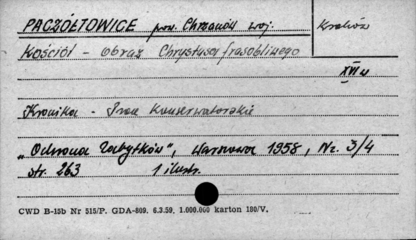 PACZÓŁTOWICE pow. Chrzanów woj. Kraków
Kościół - obraz Chrystusa frasobliwego
XVI w
Kronika - Prace Konserwatorskie
„Ochrona Zabytków", Warszawa 1958, Nr. 3/4
str. 263 1 ilustr.
CWD B-15b Nr 515/P. GDA-809. 6.3.59. 1.000.000 karton 180/V.